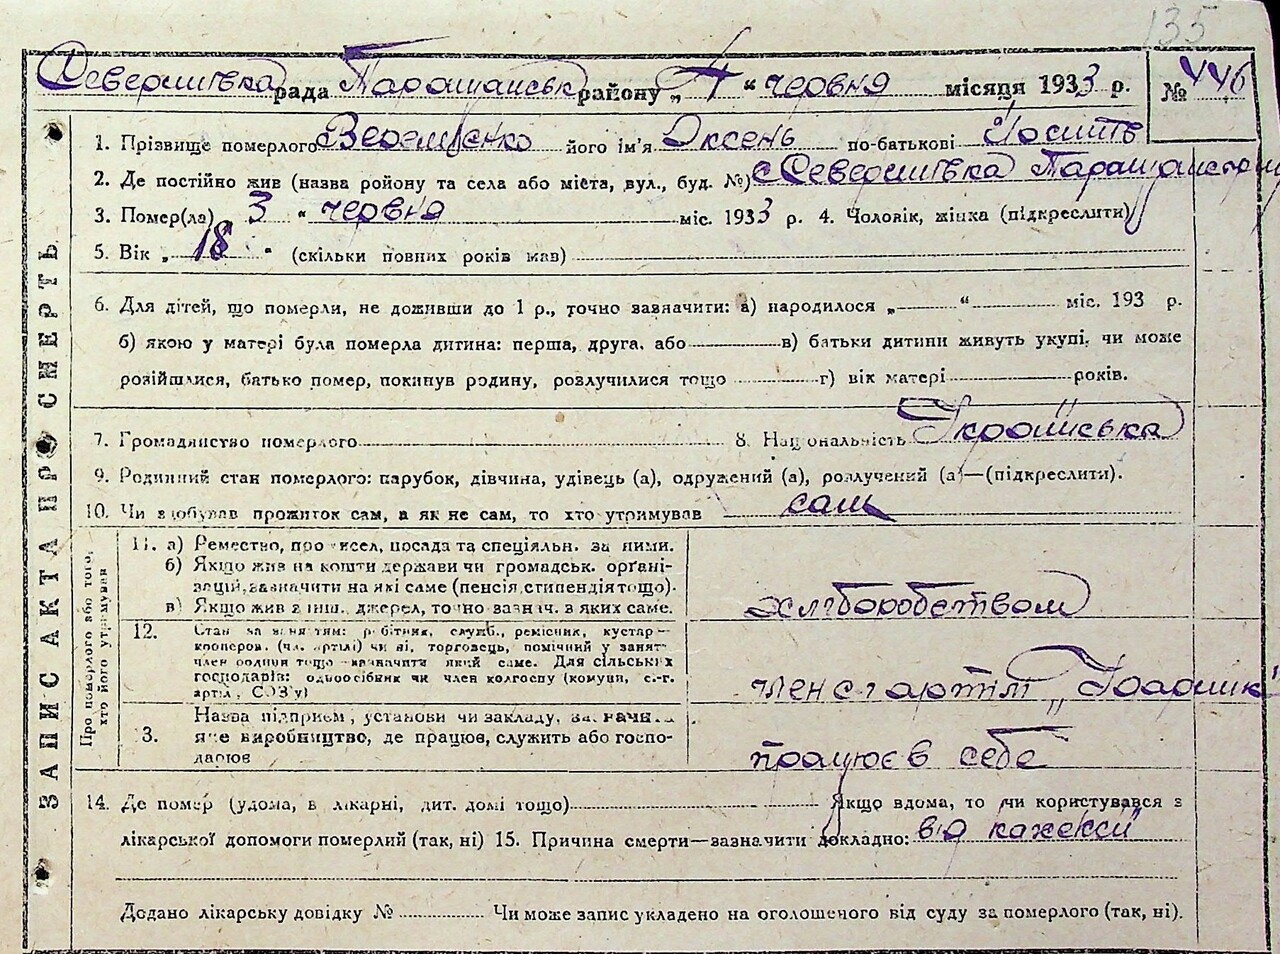 135
Северинівка рада Таращанськ району „4“ червня місяця 1933 р. № 446
1. Прізвище померлого Веремієнко його ім'я Оксень по-батькові Йосипів
2. Де постійно жив (назва району та села або міста, вул., буд. №) с Северинівка Таращанськ
3. Помер(ла) 3 “ червня міс. 1933 р. 4. Чоловік, жінка (підкреслити)
5. Вік „ 18 “ (скільки повних років мав)
6. Для дітей, що померли, не доживши до 1 р., точно зазначити: а) народилося „ “ міс. 193 р.
б) якою у матері була померла дитина: перша, друга, або в) батьки дитини живуть укупі, чи може
розійшлися, батько помер, покинув родину, розлучилися тощо г) вік матері років.
7. Громадянство померлого 8. Національність Українська
9. Родинний стан померлого: парубок, дівчина, удівець (а), одружений (а), розлучений (а)—(підкреслити).
10. Чи здобував прожиток сам, а як не сам, то хто утримував сам
ЗАПИС АКТА ПРО СМЕРТЬ
Про померлого або того, хто його утримував
11. а) Ремество, промисел, посада та спеціяльн. за ними.
б) Якщо жив на кошти держави чи громадськ. орґані-
зацій, зазначити на які саме (пенсія, стипендія тощо).
в) Якщо жив з інш. джерел, точно зазнач. з яких саме.
хліборобством
12. Стан за заняттям: робітник, служб., ремісник, кустар—
кооперов. (чл. артілі) чи ні, торговець, помічний у занят.
член родини тощо—зазначити який саме. Для сільських
господарів: одноосібник чи член колгоспу (комуни, с.-г.
артіл., СОЗ'у)
член с г артілі
13. Назва підприєм., установи чи закладу, зазначити
яке виробництво, де працює, служить або госпо-
дарює
працює в себе
14. Де помер (удома, в лікарні, дит. домі тощо) Якщо вдома, то чи користувався з
лікарської допомоги померлий (так, ні) 15. Причина смерти—зазначити докладно: від кахексії
Додано лікарську довідку № Чи може запис укладено на оголошеного від суду за померлого (так, ні).